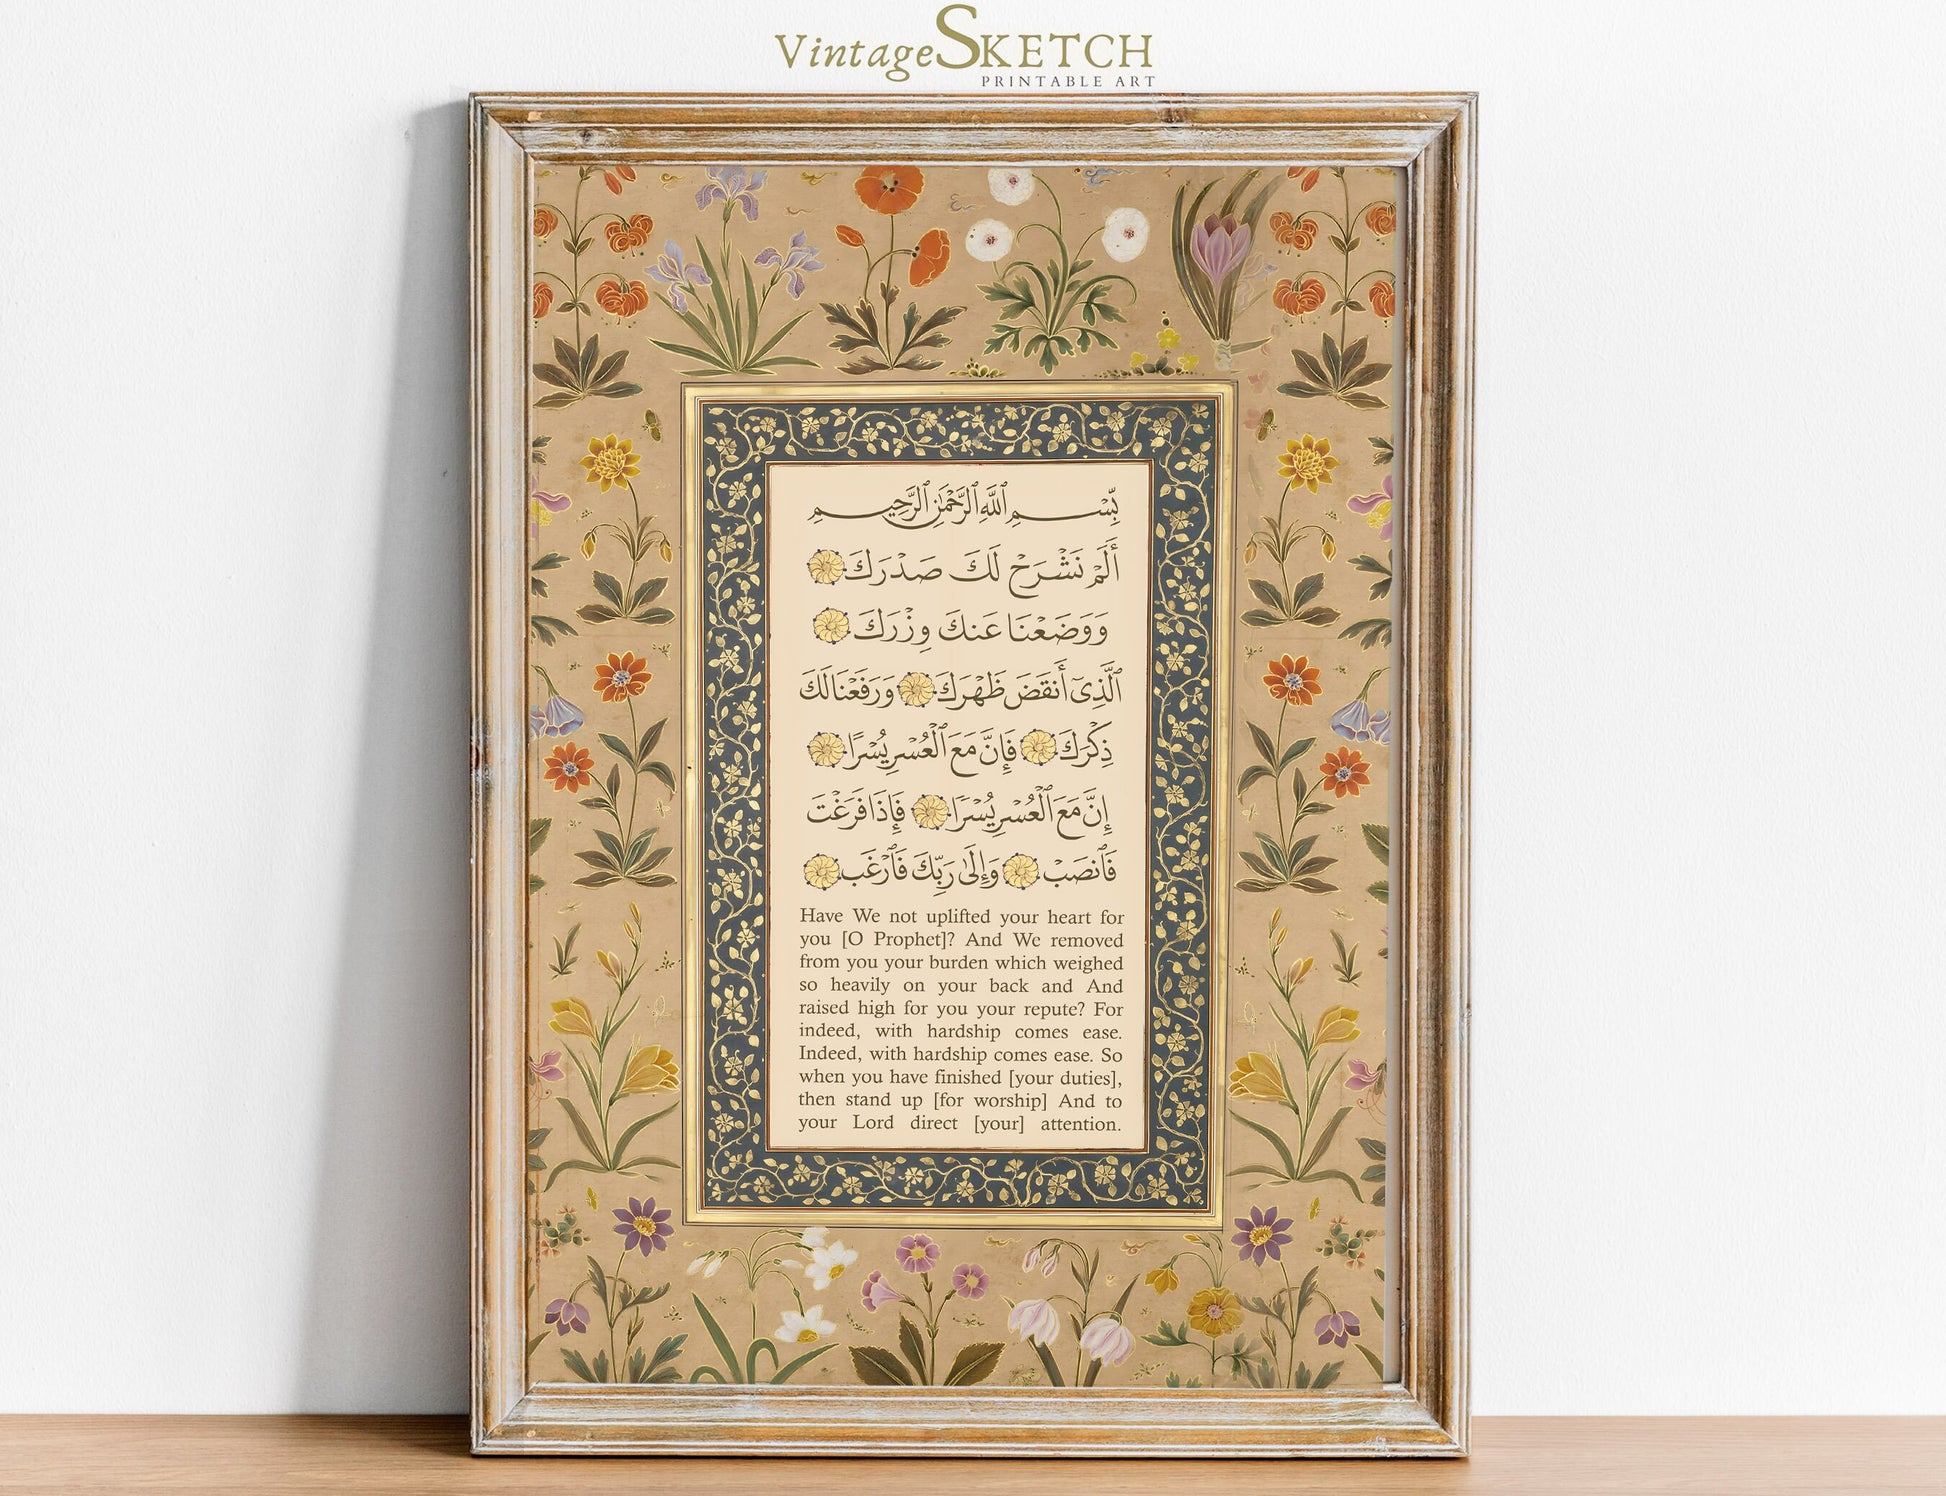 VintageSKETCH
PRINTABLE ART
بِّسْمِ ٱللَّهِ ٱلرَّحْمَٰنِ ٱلرَّحِيمِ
أَلَمْ نَشْرَحْ لَكَ صَدْرَكَ
وَوَضَعْنَا عَنكَ وِزْرَكَ
ٱلَّذِىٓ أَنقَضَ ظَهْرَكَ وَرَفَعْنَا لَكَ
ذِكْرَكَ فَإِنَّ مَعَ ٱلْعُسْرِ يُسْرًا
إِنَّ مَعَ ٱلْعُسْرِ يُسْرًا فَإِذَا فَرَغْتَ
فَٱنصَبْ وَإِلَىٰ رَبِّكَ فَٱرْغَب
Have We not uplifted your heart for
you [O Prophet]? And We removed
from you your burden which weighed
so heavily on your back and And
raised high for you your repute? For
indeed, with hardship comes ease.
Indeed, with hardship comes ease. So
when you have finished [your duties],
then stand up [for worship] And to
your Lord direct [your] attention.